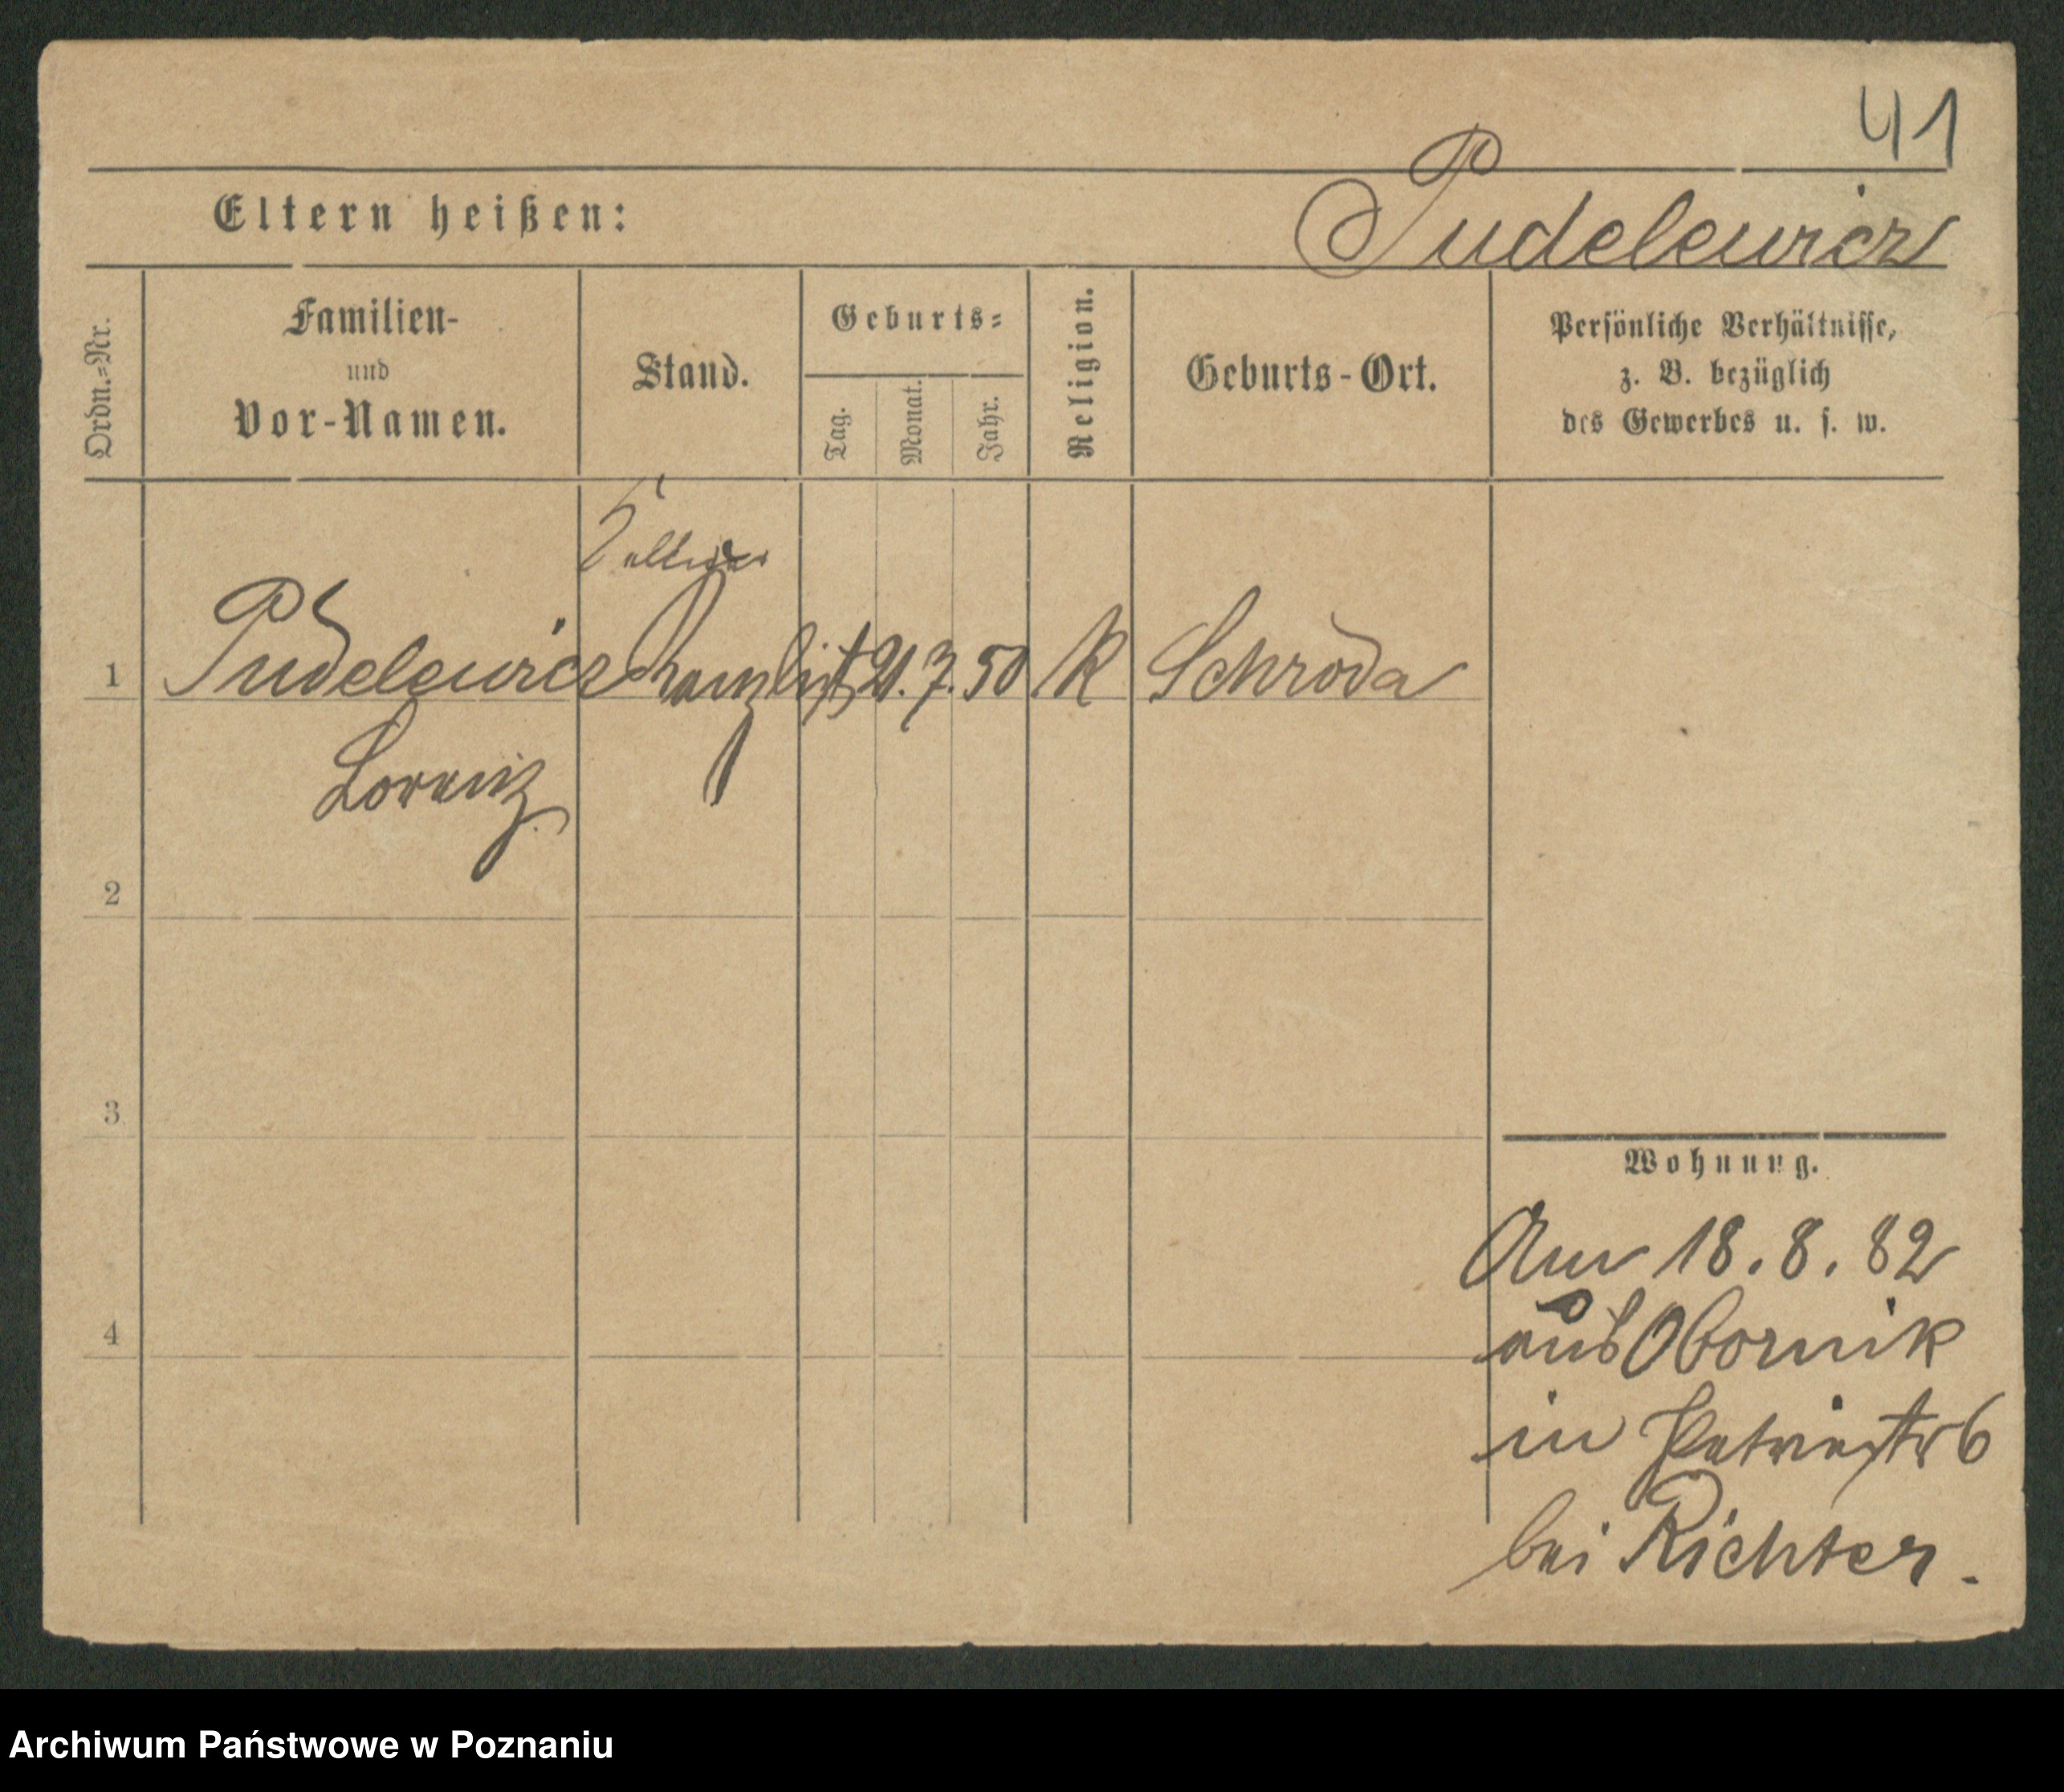 41
Eltern heißen:
Pudelewicz
Ordn.=Nr.
Familien-
und
Vor-Namen.
Stand.
Geburts=
Tag.
Monat.
Jahr.
Religion.
Geburts-Ort.
Persönliche Verhältnisse,
z. B. bezüglich
des Gewerbes u. s. w.
1 Pudelewicz Kanzlist 21. 7. 50 K Schroda
Lorenz
2
3
4
Wohnung.
Am 18. 8. 82
aus Obornik
in Petristr 6
bei Richter.
Archiwum Państwowe w Poznaniu